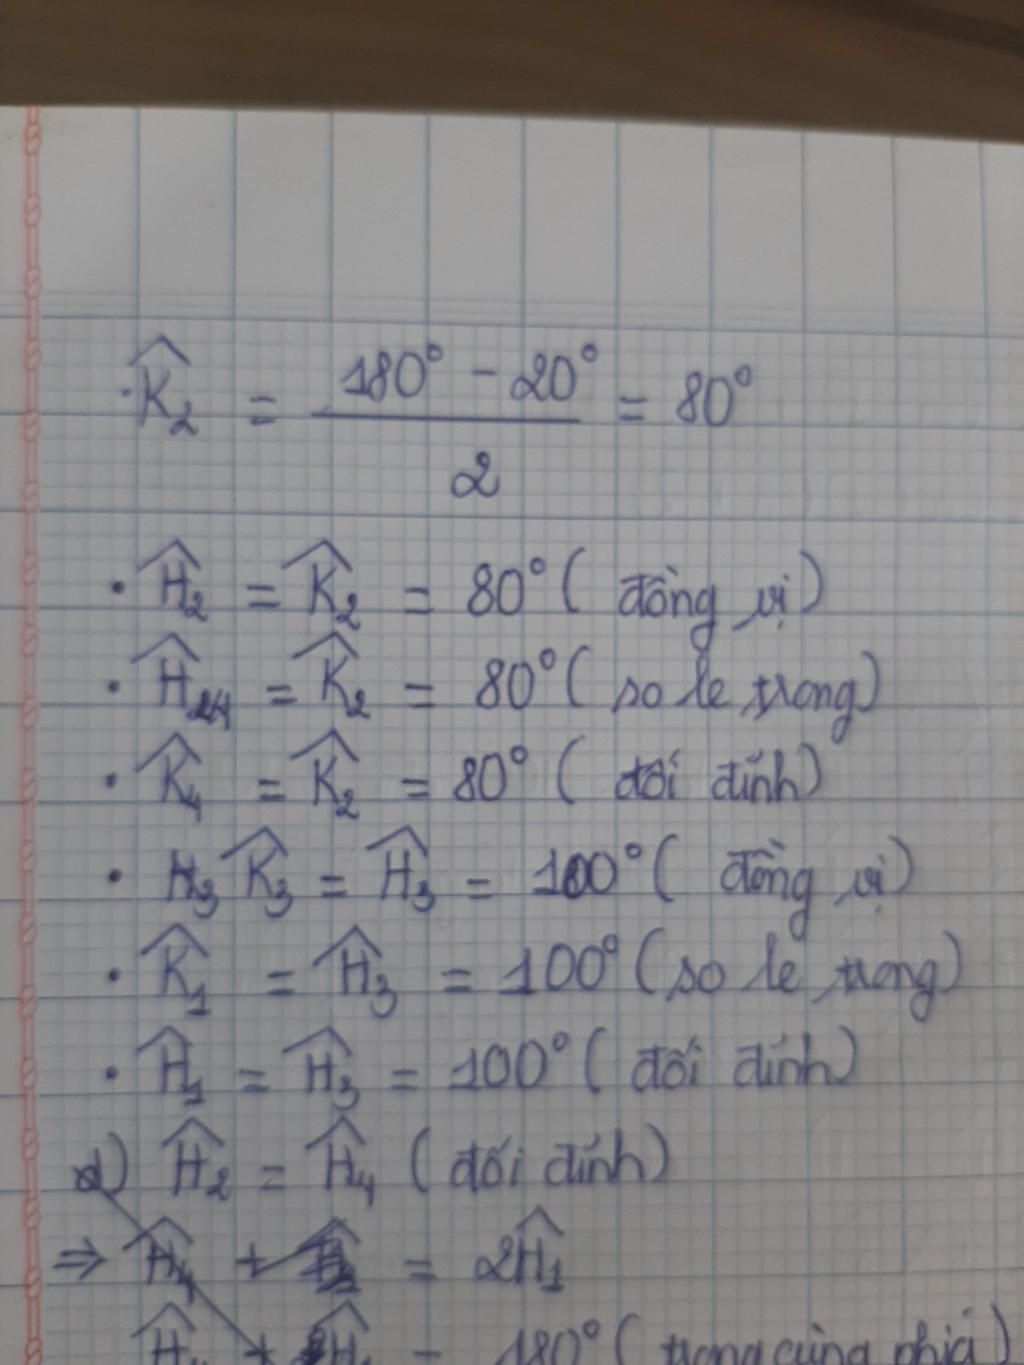 · K̂₂ = (180° - 20°) / 2 = 80°
· Ĥ₂ = K̂₂ = 80° ( đồng vị )
· Ĥ₄ = K̂₂ = 80° ( so le trong )
· K̂₄ = K̂₂ = 80° ( đối đỉnh )
· K̂₃ = Ĥ₃ = 100° ( đồng vị )
· K̂₁ = Ĥ₃ = 100° ( so le trong )
· Ĥ₁ = Ĥ₃ = 100° ( đối đỉnh )
d) Ĥ₂ = Ĥ₄ ( đối đỉnh )
⇒ Ĥ₄ + = 2Ĥ₁
+ = 180° ( trong cùng phía )